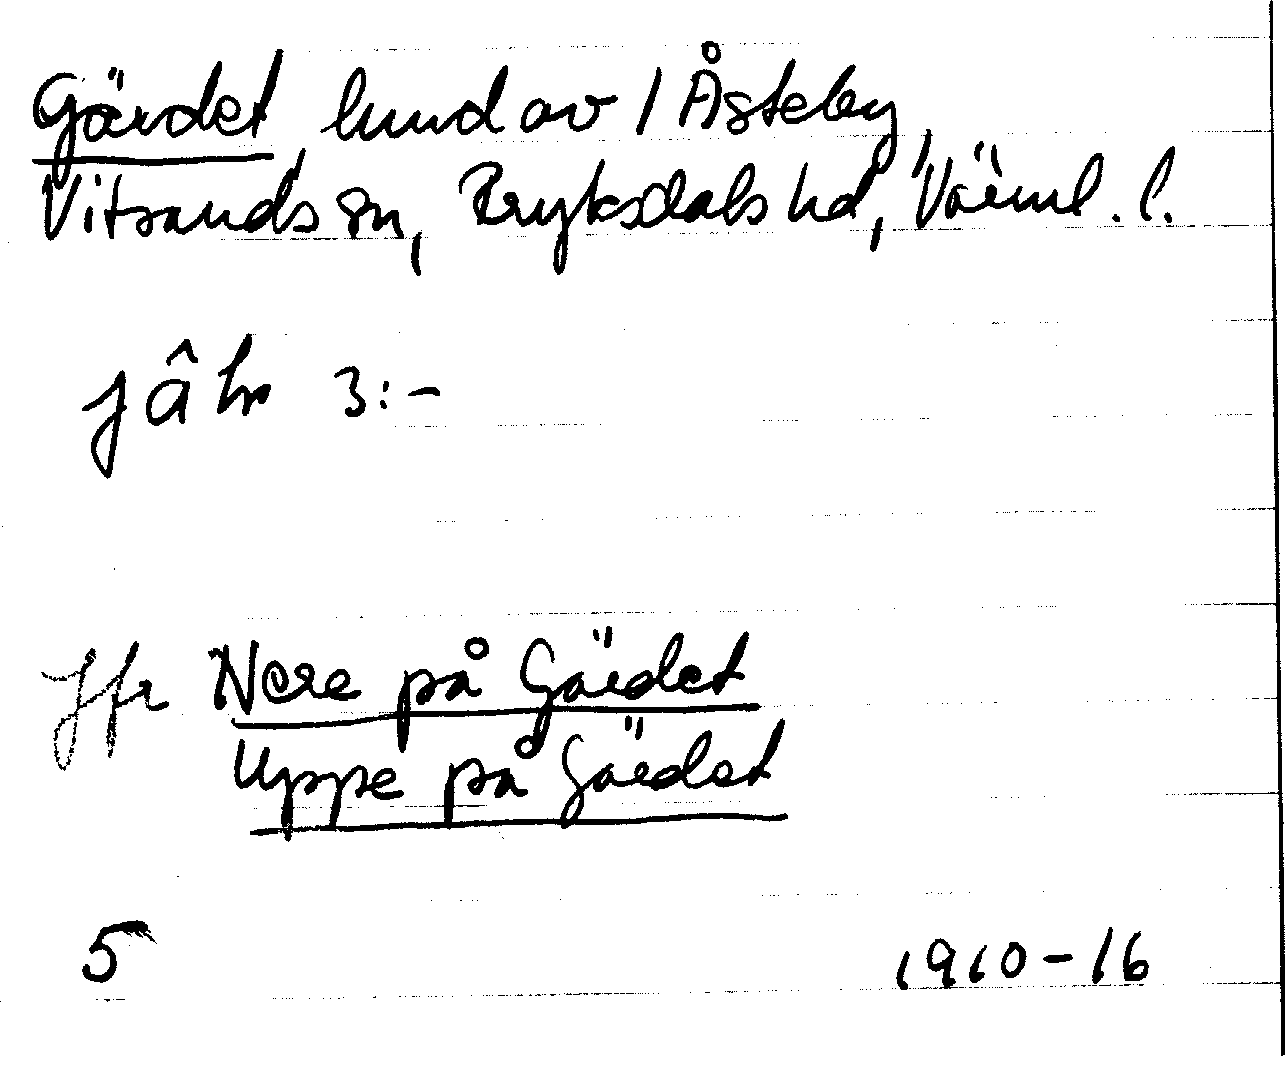 Gärdet, hmnd av 1 Åsteby,
Vitsands sn, Fryksdals hd, Värml. l.
jâhr 3:-
Jfr Nere på Gärdet
Uppe på Gärdet
5 1910-16